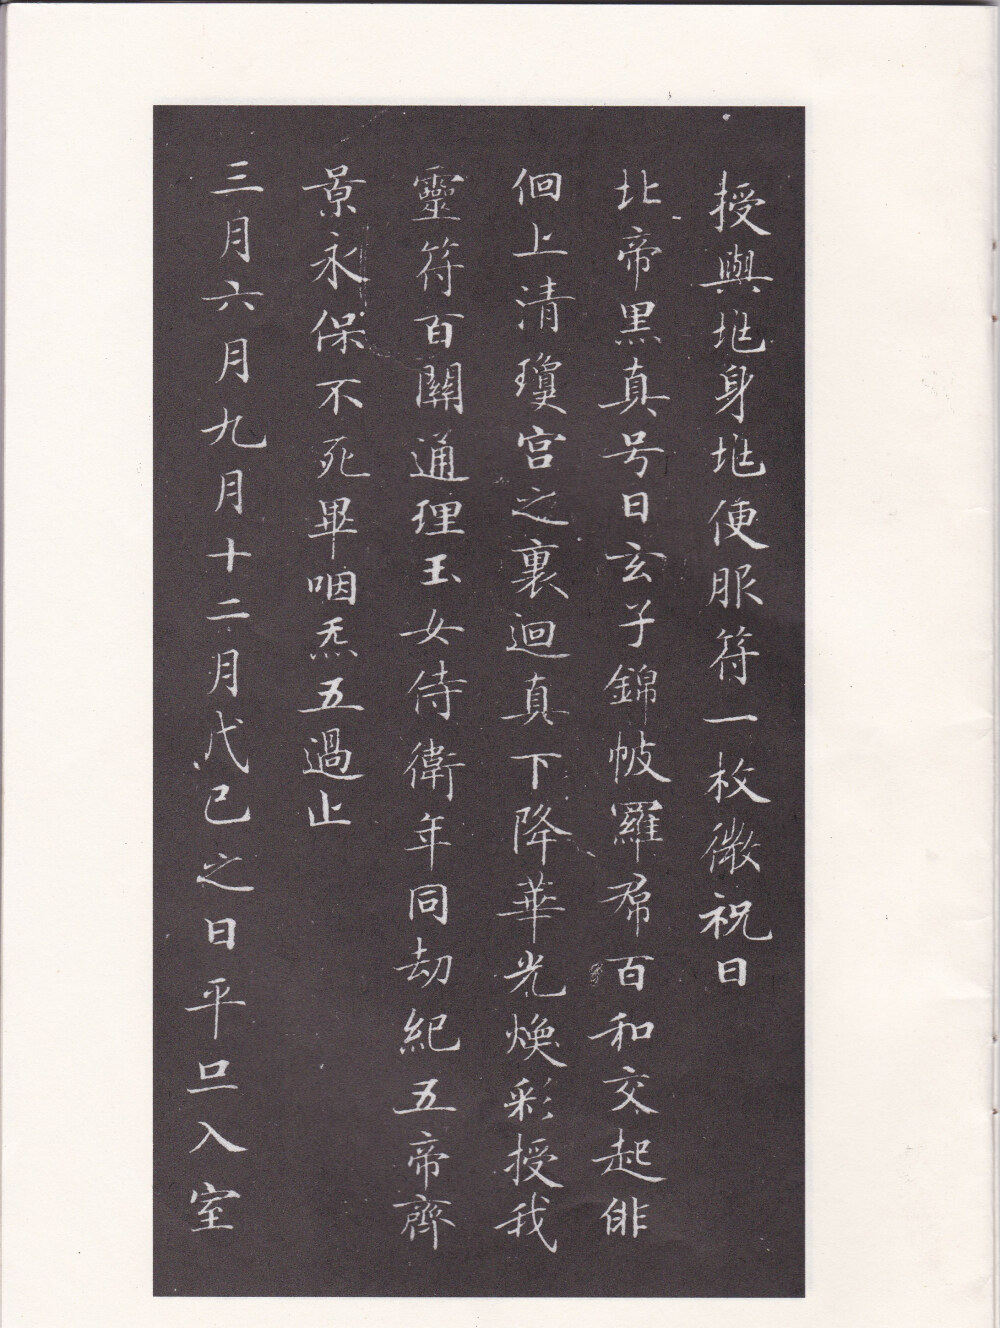 授與𡉏身𡉏便服符一枚微祝曰
北帝黑真号曰玄子錦帔羅帬百和交起俳
佪上清瓊宫之裏迴真下降華光煥彩授我
靈符百關通理玉女侍衛年同劫紀五帝齊
景永保不死畢咽炁五過止
三月六月九月十二月戊己之日平旦入室